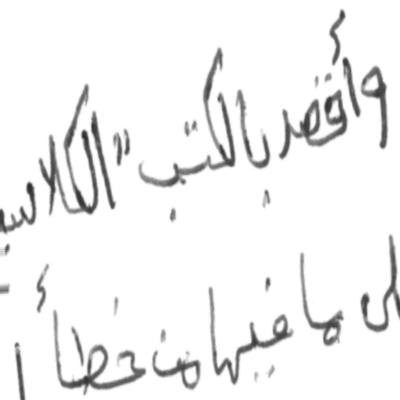 وأقصد بالكتب "الكلاسي
ما فيها من خطأ